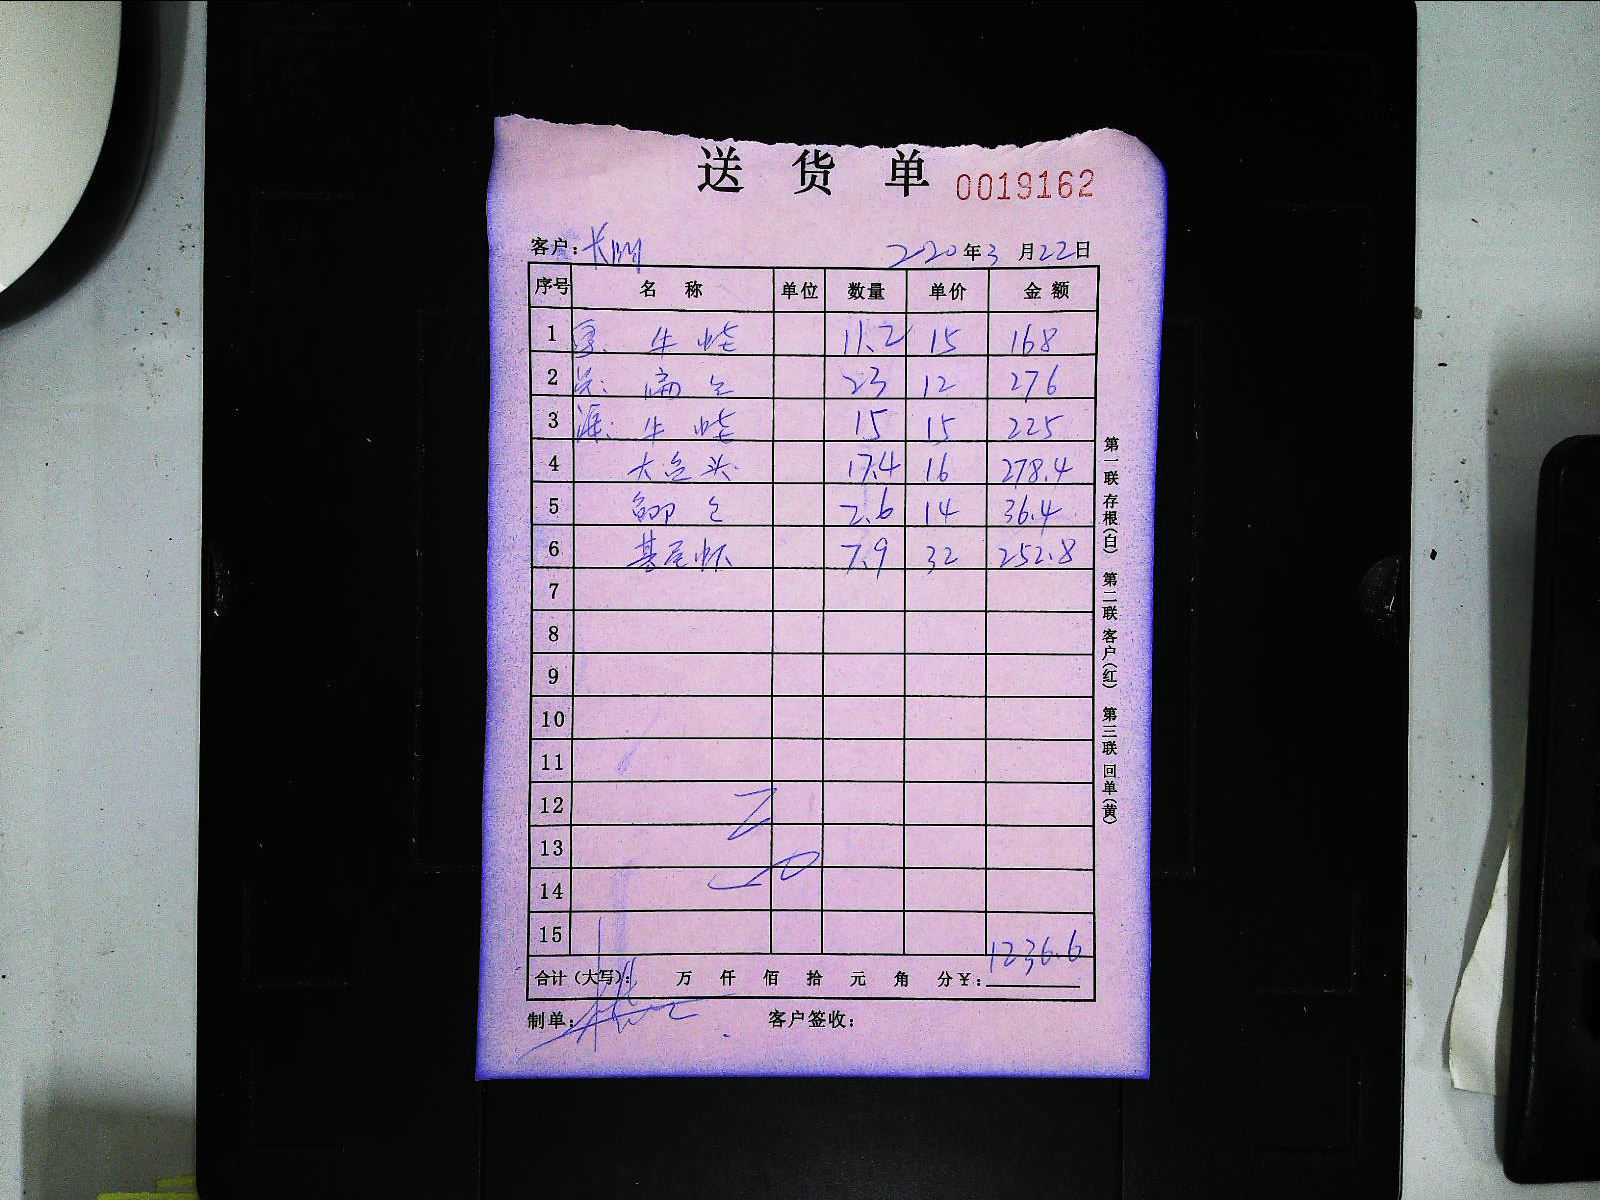 送货单 0019162
客户: 长 2020年3月22日
序号 名称 单位 数量 单价 金额
1 牛蛙 11.2 15 168
2 扁鱼 23 12 276
3 牛蛙 15 15 225
4 大鱼头 17.4 16 278.4
5 鲫鱼 2.6 14 36.4
6 基尾虾 7.9 32 252.8
7
8
9
10
11
12
13
14
15
合计(大写): 万 仟 佰 拾 元 角 分¥: 1236.6
制单: 客户签收:
第一联 存根(白) 第二联 客户(红) 第三联 回单(黄)